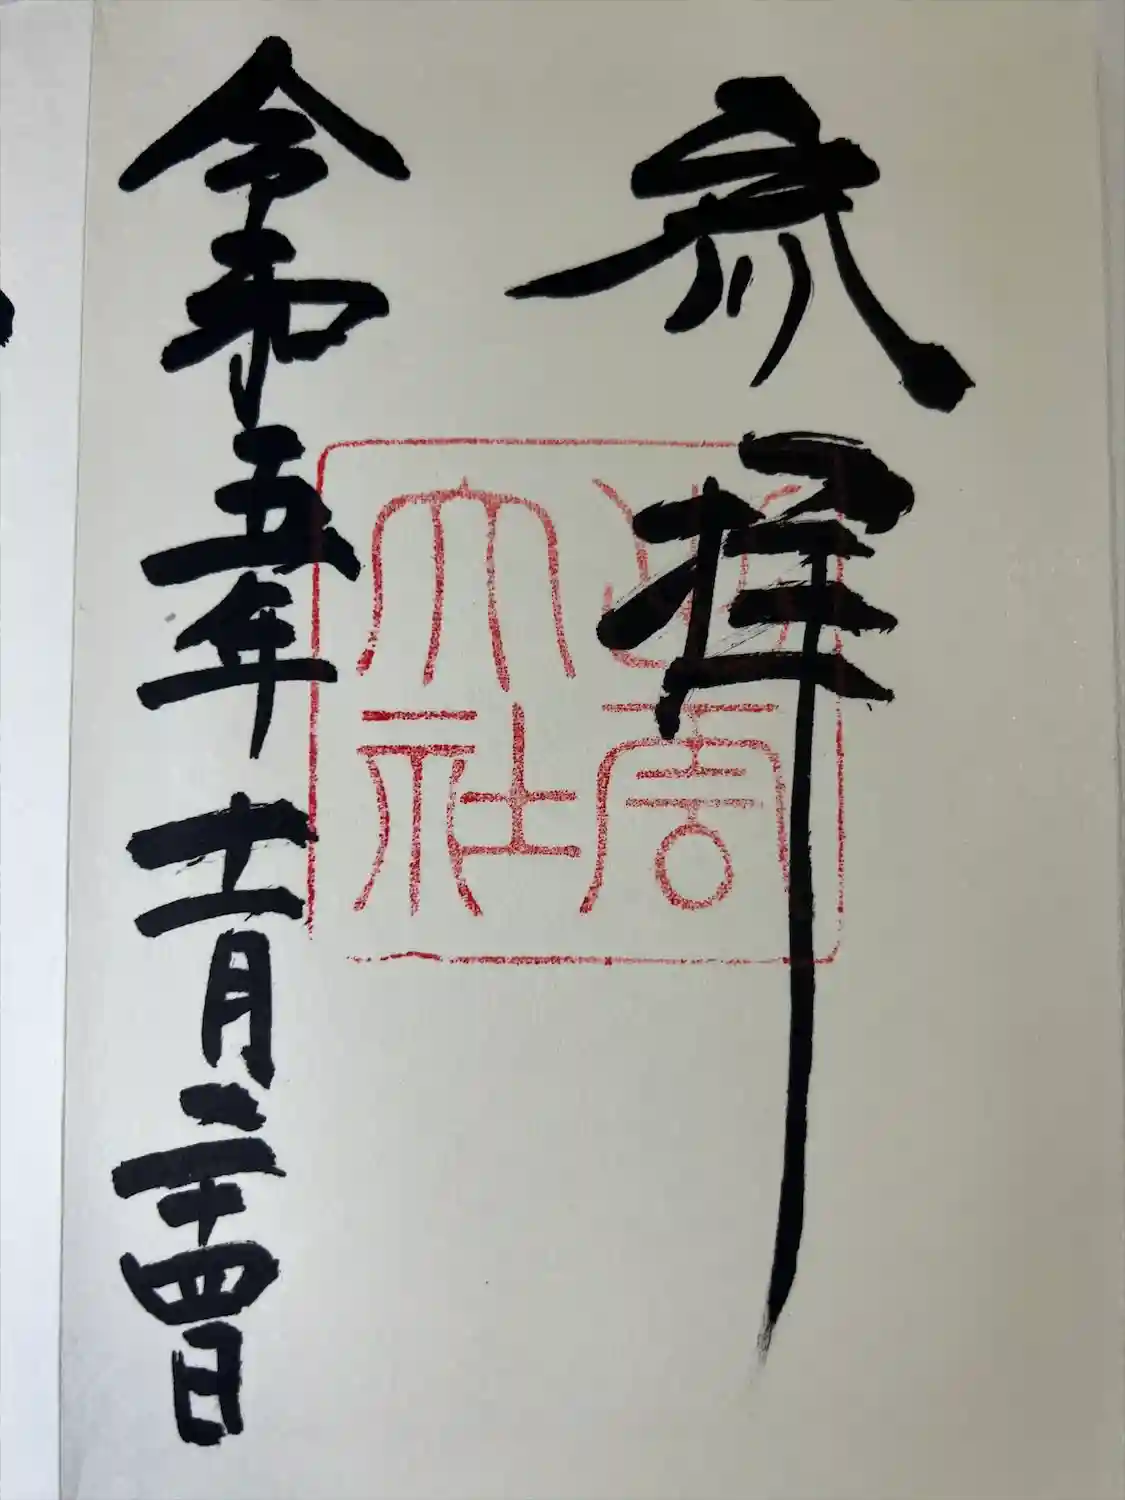 参拝
出雲
大社
令和五年十一月二十四日